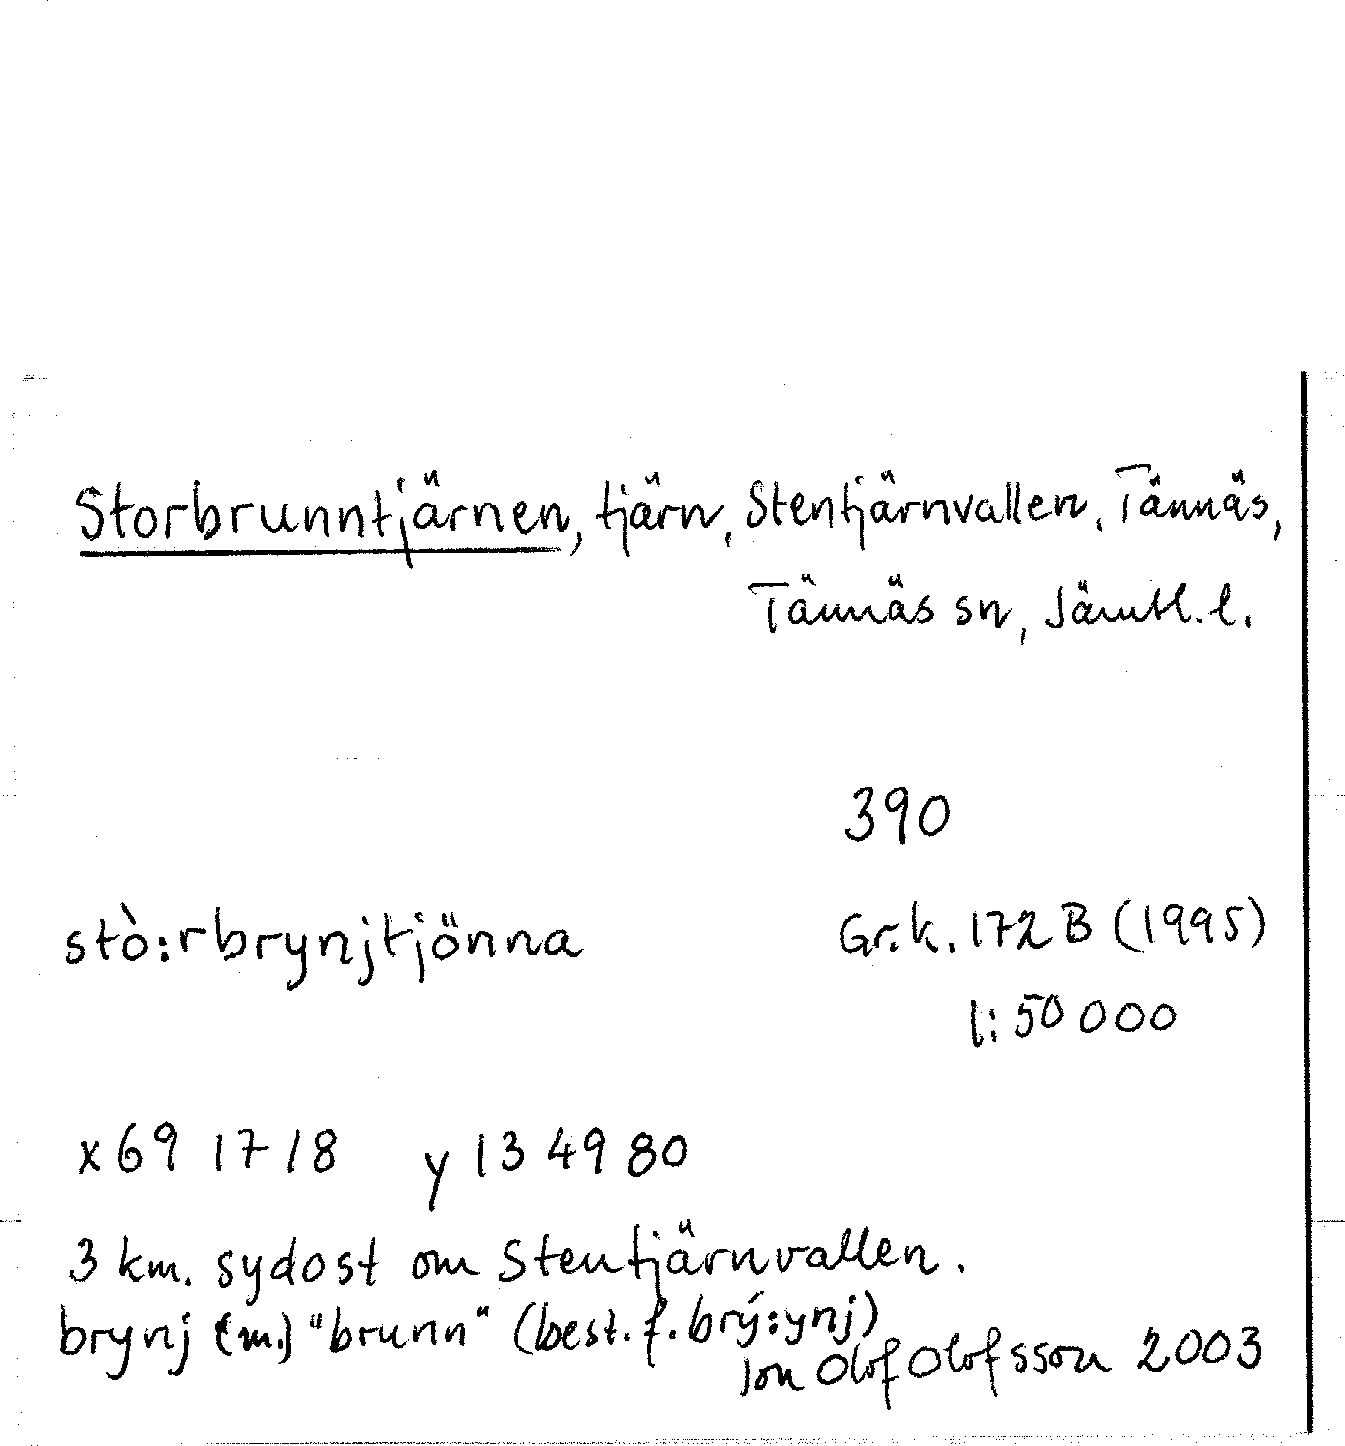 Storbrunntjärnen, tjärn, Stentjärnvallen, Tännäs,
Tännäs sn, Jämtl. l.
390
stò:rbrynjtjönna
Gr.k. 172 B (1995)
1:50 000
x 69 17 18 y 13 49 80
3 km. sydost om Stentjärnvallen.
brynj (m.) "brunn" (best. f. brý:ynj)
Jon Olof Olofsson 2003